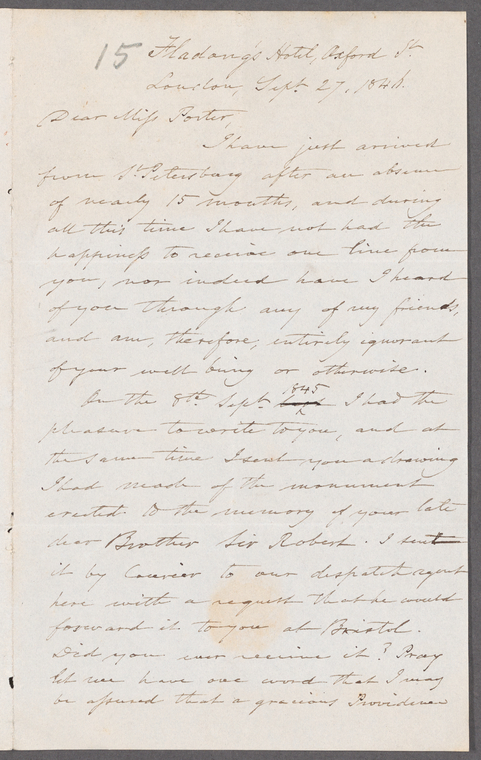 15 Fladong's Hotel, Oxford St
London, Sept 27, 1846.
Dear Miss Porter,
I have just arrived
from St Petersburg after an absence
of nearly 15 months, and during
all this time I have not had the
happiness to receive one line from
you, nor indeed have I heard
of you through any of my friends,
and am, therefore, entirely ignorant
of your well being or otherwise.
On the 8th Sept. 1845 I had the
pleasure to write to you, and at
the same time I sent you a drawing
I had made of the monument
erected to the memory of your late
dear Brother Sir Robert. I sent
it by Courier to our despatch agent
here with a request that he would
forward it to you at Bristol.
Did you ever receive it? Pray
let me have one word that I may
be assured that a gracious Providence